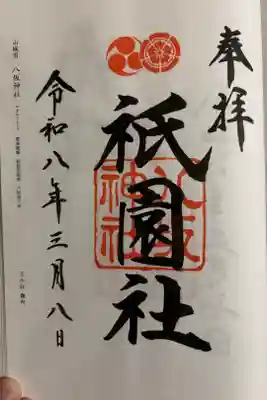 奉拝
祇園社
八坂神社
令和八年三月八日
八坂神社